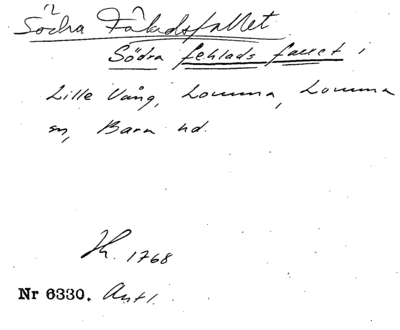 Södra Fäladsfallet
Södra fehlads fallet i
Lille Vång, Lomma, Lomma
sn, Bara hd.
1768
Nr 6330. Avt 1.